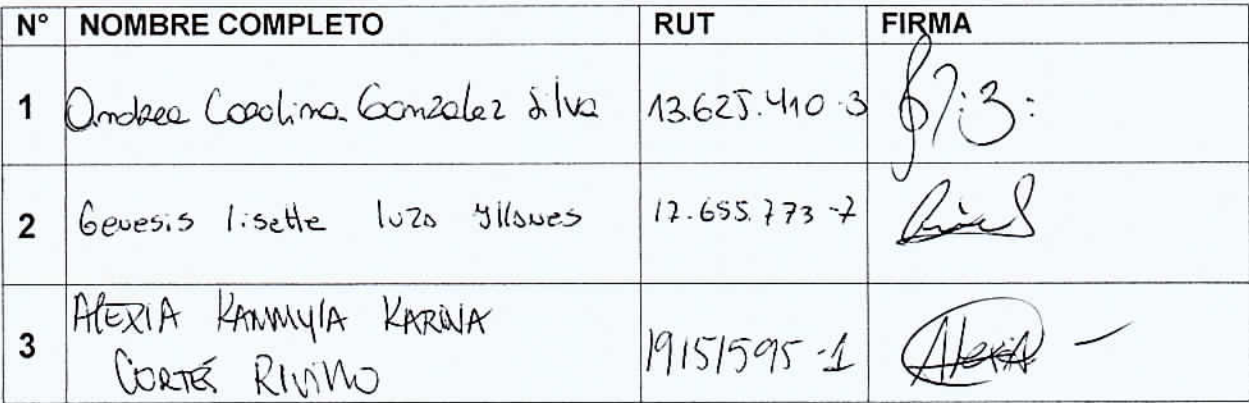 N° NOMBRE COMPLETO RUT FIRMA
1 Andrea Carolina Gonzalez Silva 13.625.410-3
2 Genesis lisette luzo Yllanes 17.655.773-7
3 ALEXIA KANMYLA KARINA
CORTÉS 19151595-1 Alexia